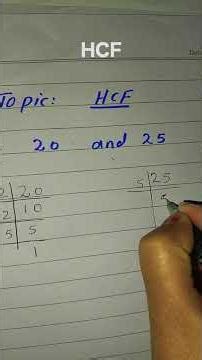 HCF
Topic: HCF
20 and 25
2 | 20
2 | 10
5 | 5
1
5 | 25
5